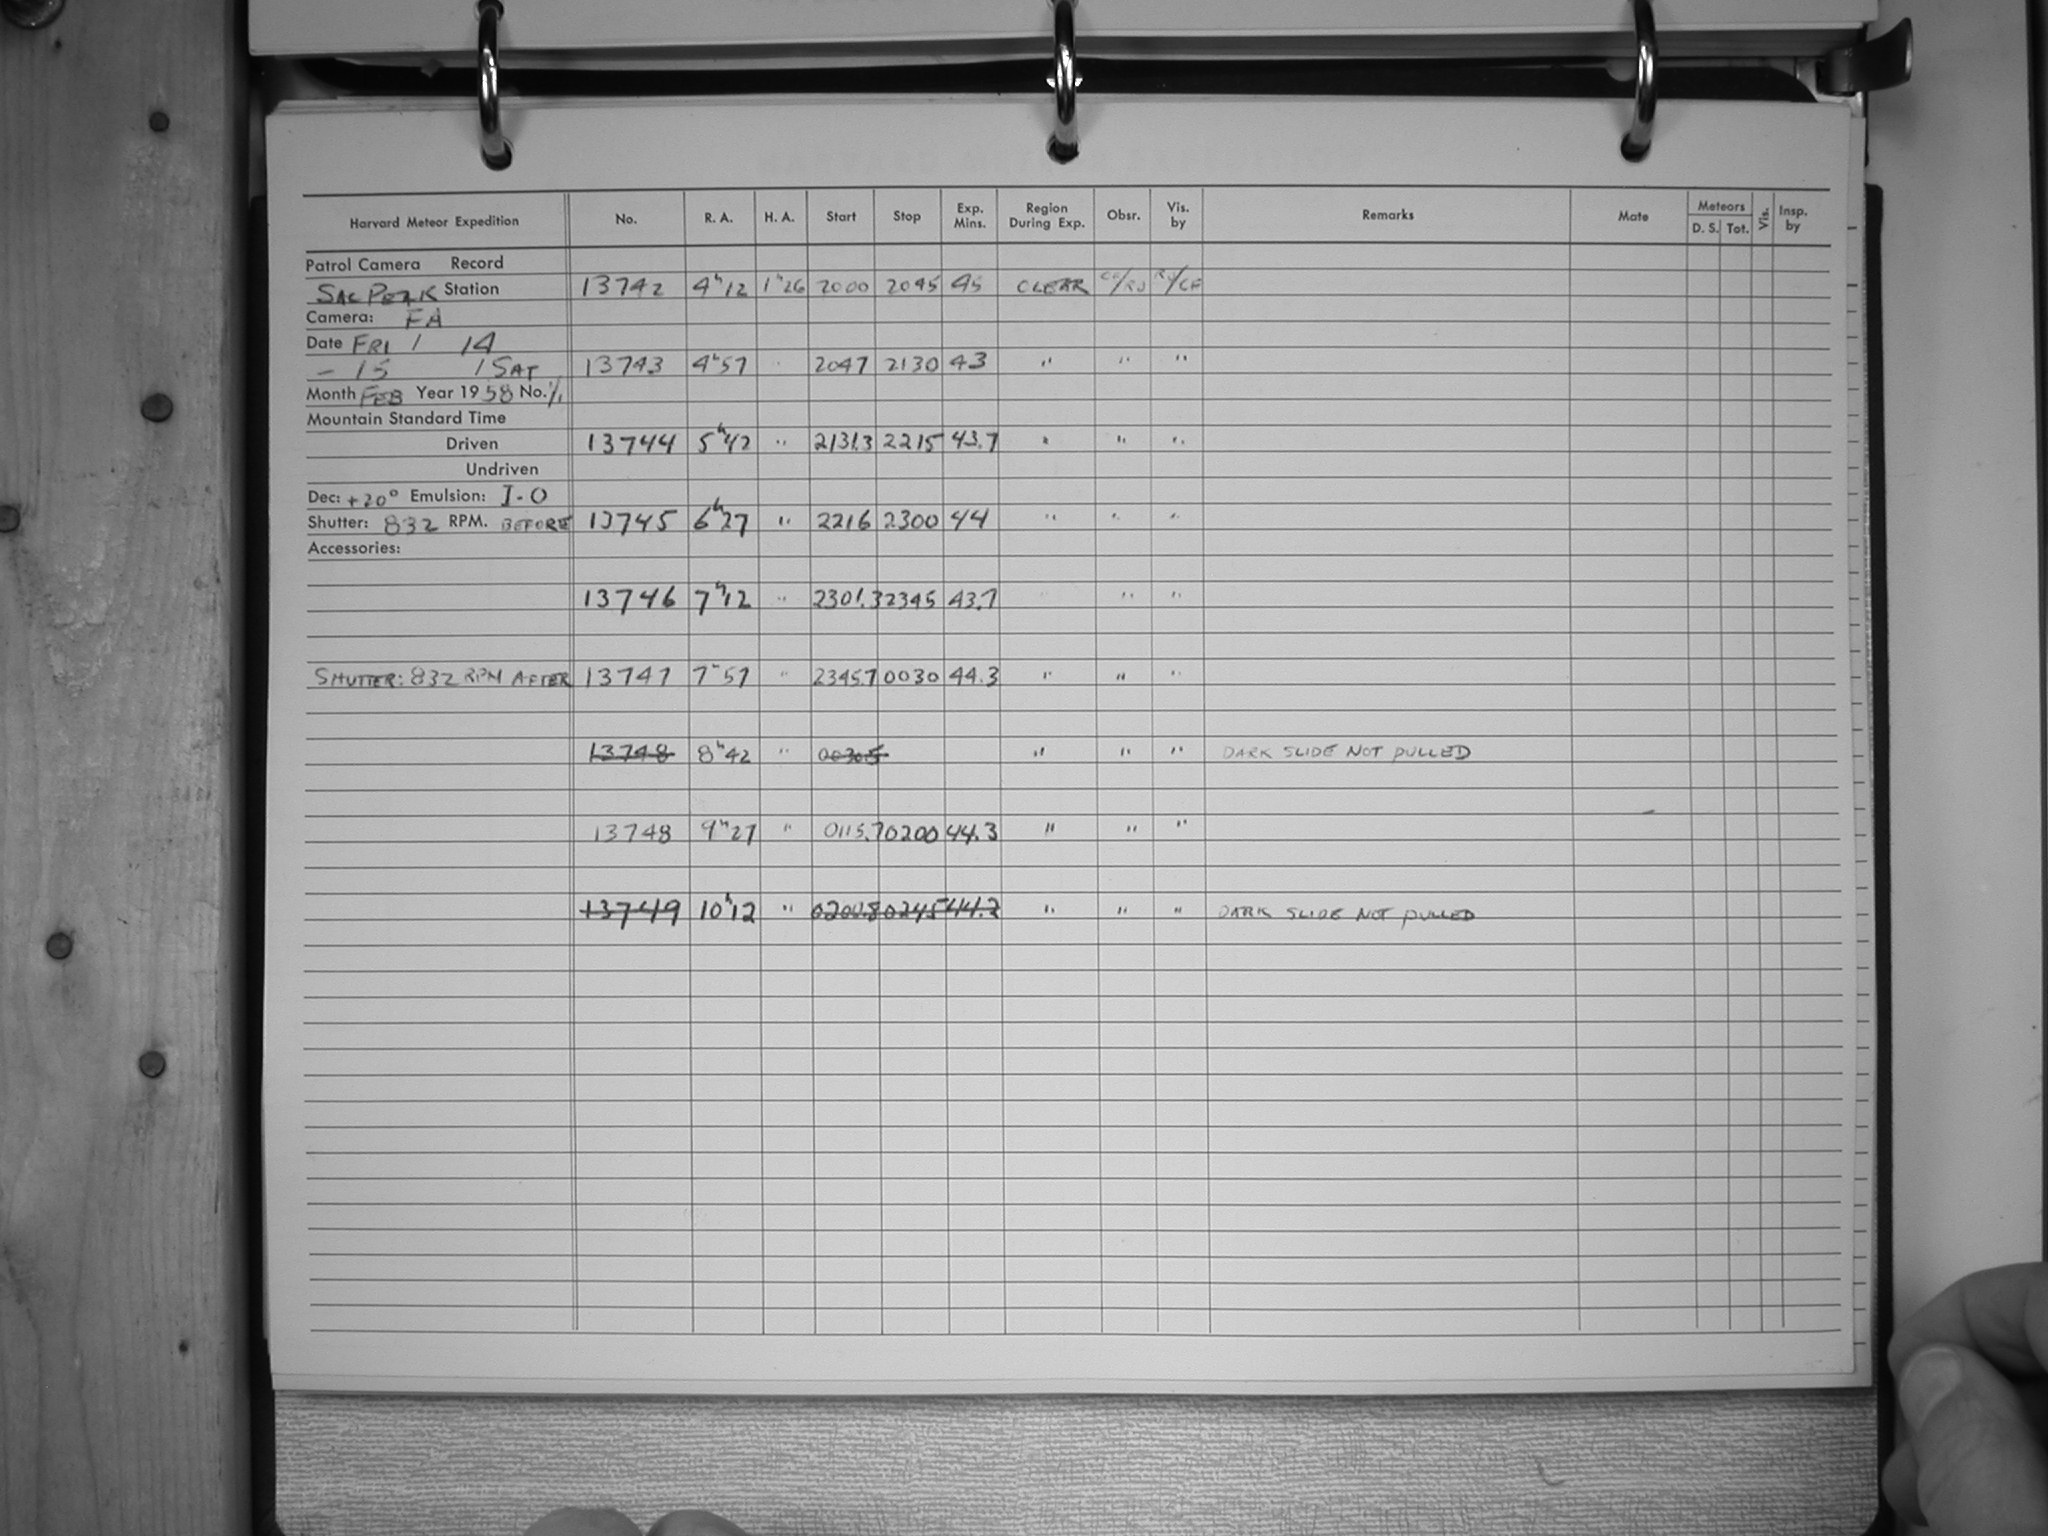 Harvard Meteor Expedition No. R. A. H. A. Start Stop Exp. Mins. Region During Exp. Obsr. Vis. by Remarks Mate Meteors D. S. Tot. Vis. Insp. by
Patrol Camera Record
SAC PEAK Station 13742 4ʰ12 1ʰ26 2000 2045 45 CLEAR CF/RJ RJ/CF
Camera: FA
Date FRI / 14
- 15 / SAT 13743 4ʰ57 " 2047 2130 43 " " "
Month FEB Year 1958 No. 1/1
Mountain Standard Time
Driven 13744 5ʰ42 " 2131.3 2215 43.7 " " "
Undriven
Dec: +20° Emulsion: I-O
Shutter: 832 RPM. BEFORE 13745 6ʰ27 " 2216 2300 44 " " "
Accessories:
13746 7ʰ12 " 2301.3 2345 43.7 " " "
SHUTTER: 832 RPM AFTER 13747 7ʰ57 " 2345.7 0030 44.3 " " "
13748 8ʰ42 " 0030.5 " " " DARK SLIDE NOT PULLED
13748 9ʰ27 " 0115.7 0200 44.3 " " "
13749 10ʰ12 " 0200.8 0245 44.2 " " " DARK SLIDE NOT PULLED